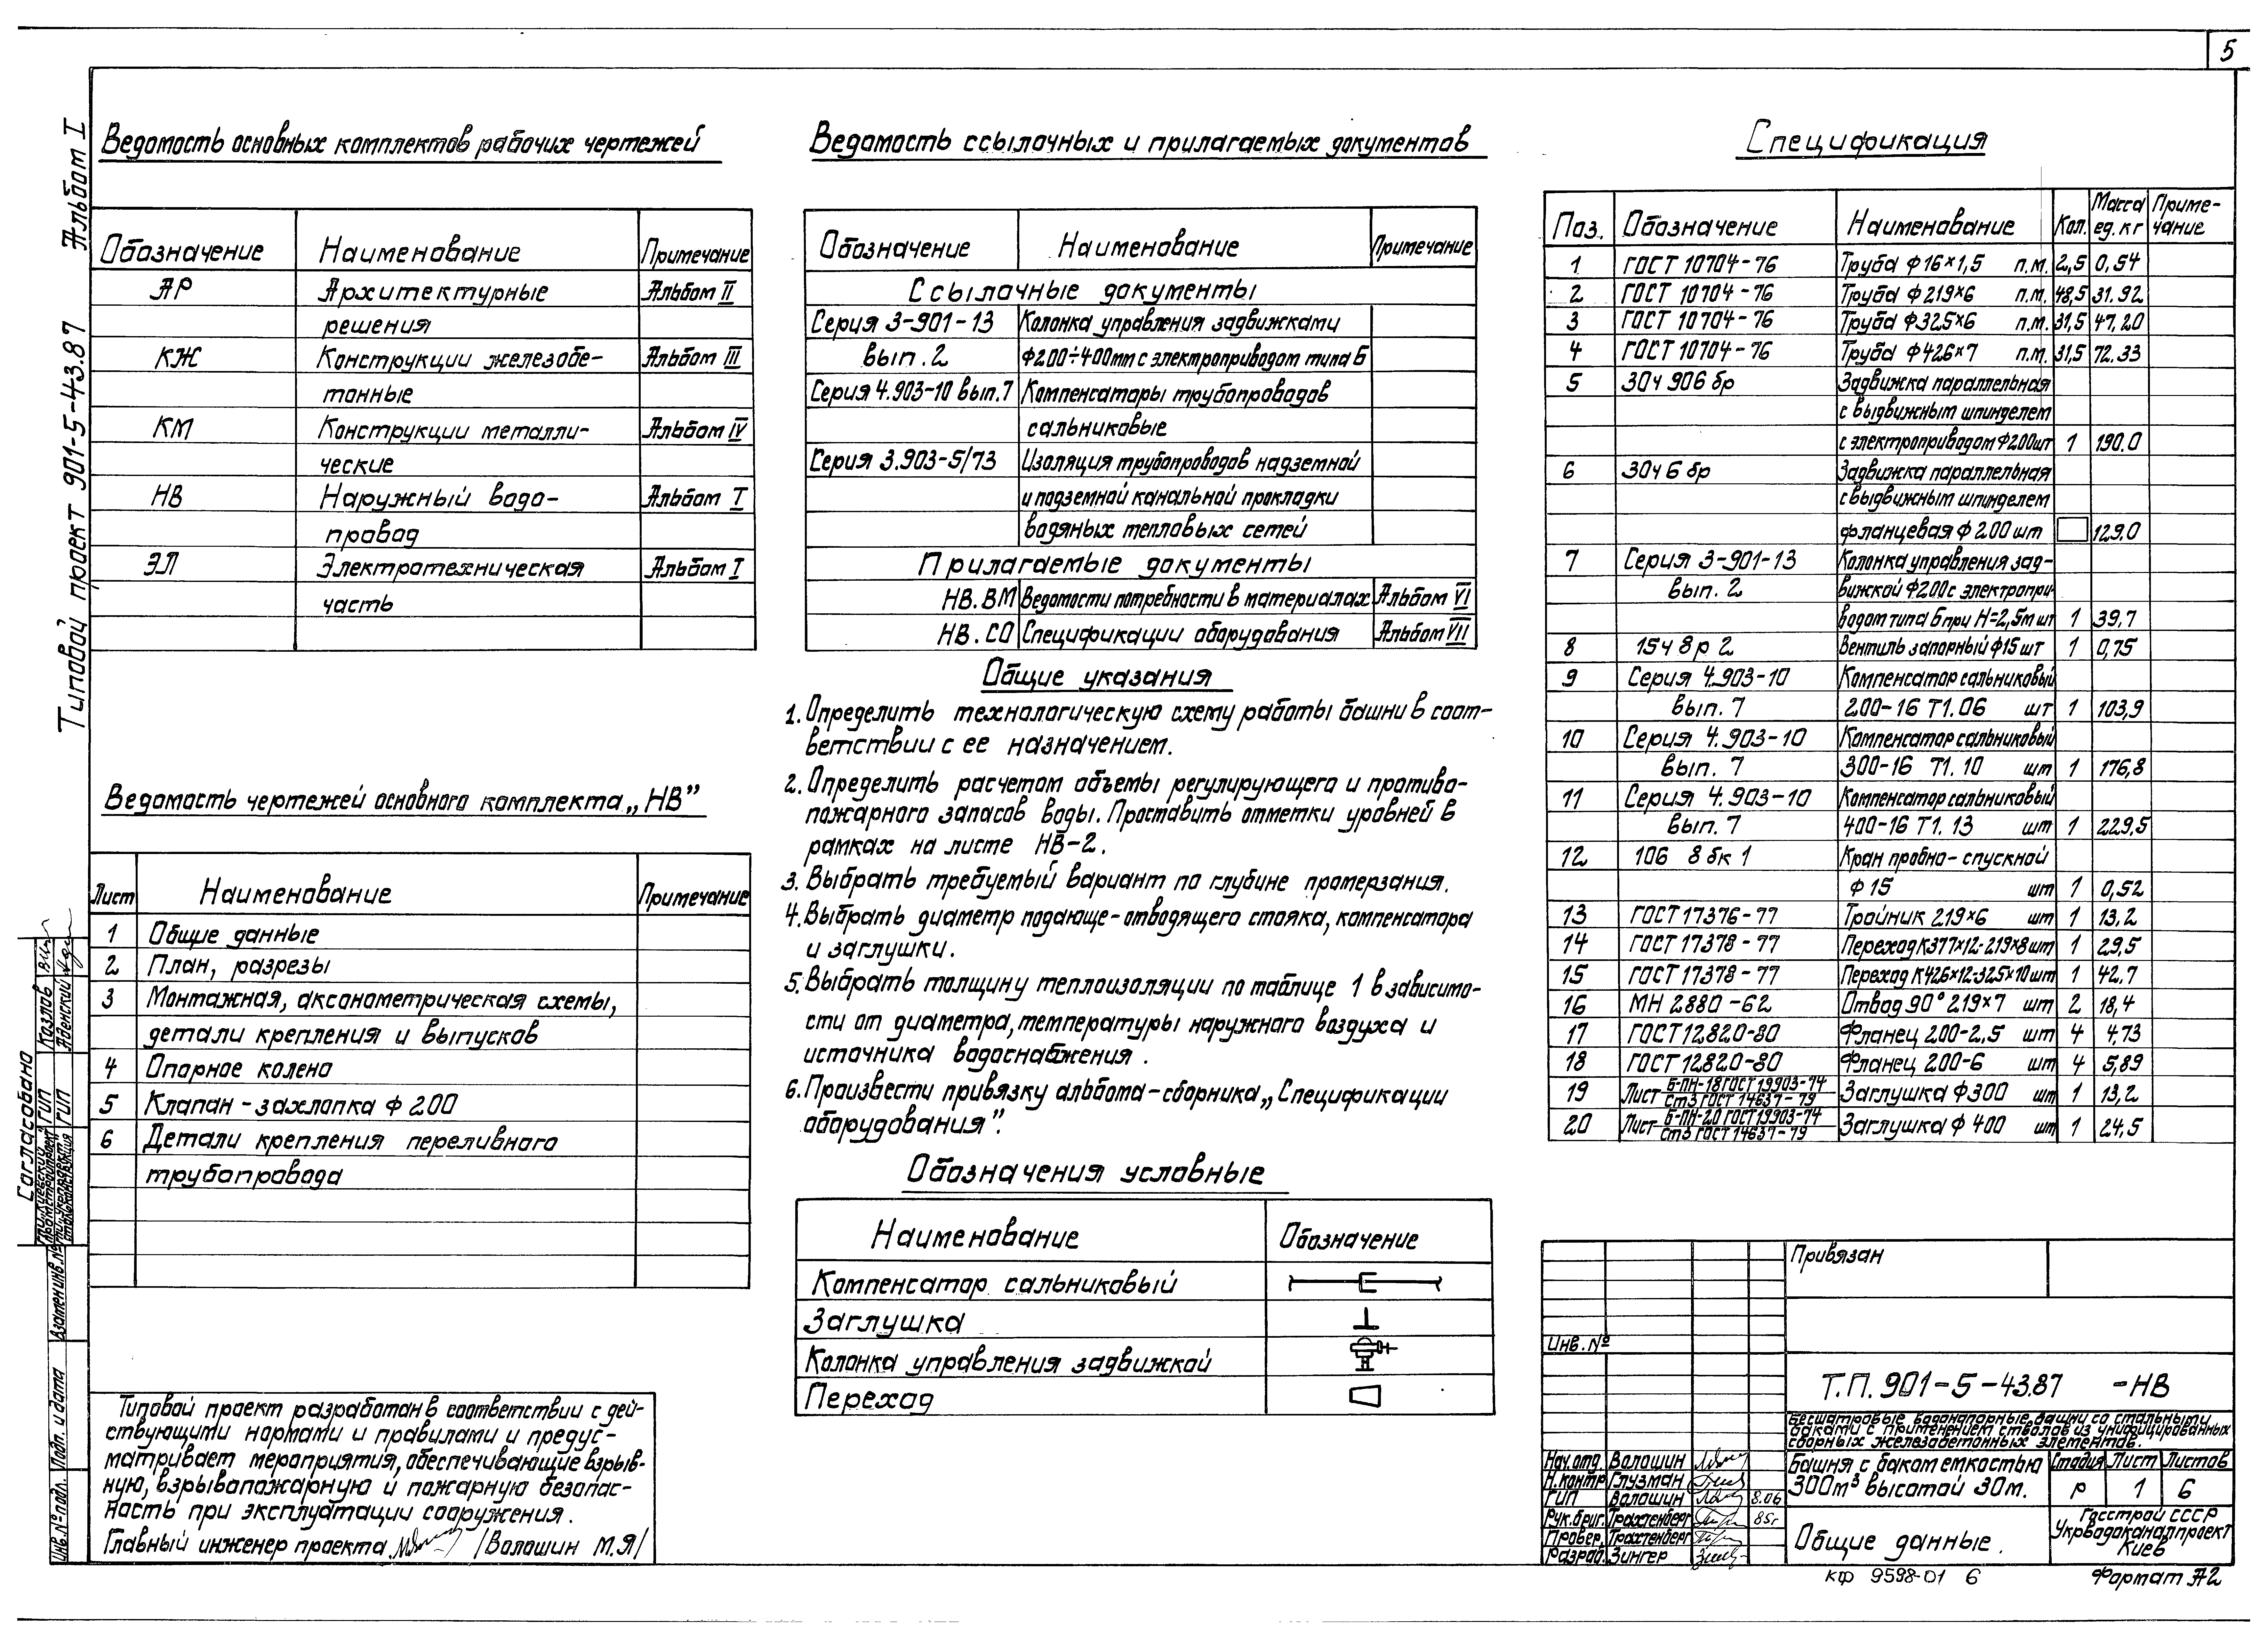 5
Альбом I
Типовой проект 901-5-43.87
Ведомость основных комплектов рабочих чертежей
Обозначение Наименование Примечание
АР Архитектурные Альбом II
решения
КЖ Конструкции железобе- Альбом III
тонные
КМ Конструкции металли- Альбом IV
ческие
НВ Наружный водо- Альбом I
провод
ЭЛ Электротехническая Альбом I
часть
Ведомость чертежей основного комплекта „НВ”
Лист Наименование Примечание
1 Общие данные
2 План, разрезы
3 Монтажная, аксонометрическая схемы,
детали крепления и выпусков
4 Опорное колено
5 Клапан - захлопка ф 200
6 Детали крепления переливного
трубопровода
Типовой проект разработан в соответствии с дей-
ствующими нормами и правилами и предус-
матривает мероприятия, обеспечивающие взрыв-
ную, взрывопожарную и пожарную безопас-
ность при эксплуатации сооружения.
Главный инженер проекта /Волошин М.Я/
Ведомость ссылочных и прилагаемых документов
Обозначение Наименование Примечание
Ссылочные документы
Серия 3-901-13 Колонка управления задвижками
вып. 2 ф200÷400мм с электроприводом типа Б
Серия 4.903-10 вып.7 Компенсаторы трубопроводов
сальниковые
Серия 3.903-5/73 Изоляция трубопроводов надземной
и подземной канальной прокладки
водяных тепловых сетей
Прилагаемые документы
НВ.ВМ Ведомости потребности в материалах Альбом VI
НВ.СО Спецификации оборудования Альбом VII
Общие указания
1. Определить технологическую схему работы башни в соот-
ветствии с ее назначением.
2. Определить расчетом объемы регулирующего и противо-
пожарного запасов воды. Проставить отметки уровней в
рамках на листе НВ-2.
3. Выбрать требуемый вариант по глубине промерзания.
4. Выбрать диаметр подающе-отводящего стояка, компенсатора
и заглушки.
5. Выбрать толщину теплоизоляции по таблице 1 в зависимо-
сти от диаметра, температуры наружного воздуха и
источника водоснабжения.
6. Произвести привязку альбома-сборника „Спецификации
оборудования”.
Обозначения условные
Наименование Обозначение
Компенсатор сальниковый
Заглушка
Колонка управления задвижкой
Переход
Спецификация
Поз. Обозначение Наименование Кол. Масса ед. кг Приме-чание
1 ГОСТ 10704-76 Труба ф16×1,5 п.м. 2,5 0,54
2 ГОСТ 10704-76 Труба ф219×6 п.м. 48,5 31.92
3 ГОСТ 10704-76 Труба ф325×6 п.м. 31,5 47,20
4 ГОСТ 10704-76 Труба ф426×7 п.м. 31,5 72.33
5 30ч 906 бр Задвижка параллельная
с выдвижным шпинделем
с электроприводом ф200шт 1 190.0
6 30ч 6 бр Задвижка параллельная
с выдвижным шпинделем
фланцевая ф 200 шт 129.0
7 Серия 3-901-13 Колонка управления зад-
вып. 2 вижкой ф200 с электропри-
водом типа Б при Н=2,5м шт 1 39,7
8 15ч 8р 2 Вентиль запорный ф15 шт 1 0,75
9 Серия 4.903-10 Компенсатор сальниковый
вып. 7 200-16 Т1.06 шт 1 103,9
10 Серия 4.903-10 Компенсатор сальниковый
вып. 7 300-16 Т1.10 шт 1 176,8
11 Серия 4.903-10 Компенсатор сальниковый
вып. 7 400-16 Т1.13 шт 1 229,5
12 10б 8 бк 1 Кран пробно-спускной
ф 15 шт 1 0,52
13 ГОСТ 17376-77 Тройник 219×6 шт 1 13,2
14 ГОСТ 17378-77 Переход К377×12-219×8 шт 1 29,5
15 ГОСТ 17378-77 Переход К426×12-325×10 шт 1 42,7
16 МН 2880-62 Отвод 90° 219×7 шт 2 18,4
17 ГОСТ 12820-80 Фланец 200-2,5 шт 4 4,73
18 ГОСТ 12820-80 Фланец 200-6 шт 4 5,89
19 Лист Б-ПН-18 ГОСТ 19903-74 / Ст3 ГОСТ 14637-79 Заглушка ф300 шт 1 13,2
20 Лист Б-ПН-20 ГОСТ 19903-74 / Ст3 ГОСТ 14637-79 Заглушка ф 400 шт 1 24,5
Привязан
Инв. №
Т.П. 901-5-43.87 -НВ
Бесшатровые водонапорные башни со стальными
баками с применением стволов из унифицированных
сборных железобетонных элементов.
Нач.отд. Волошин
Н.контр Глузман
ГИП Волошин 8.06
Рук.бриг. Трахтенберг 85г
Провер. Трахтенберг
Разраб. Зингер
Башня с баком емкостью
300м³ высотой 30м.
Стадия Лист Листов
Р 1 6
Общие данные.
Госстрой СССР
Укрводоканалпроект
Киев
КФ 9598-01 6
Формат А2
Согласовано
ГИП Козлов
ГИП Аденский
Взамен инв.№
Подп. и дата
Инв.№ подл.